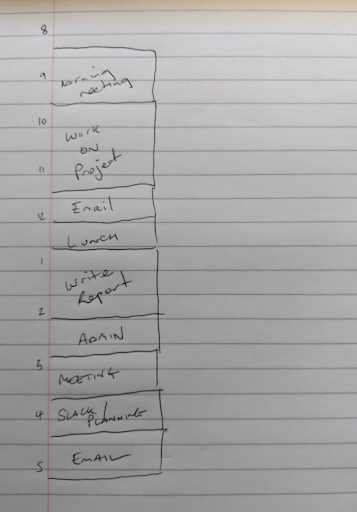 8
9 Morning
meeting
10
Work
on
11 Project
Email
12
LUNCH
1
Write
Report
2
ADMIN
3
MEETING
4 SLACK/
PLANNING
EMAIL
5